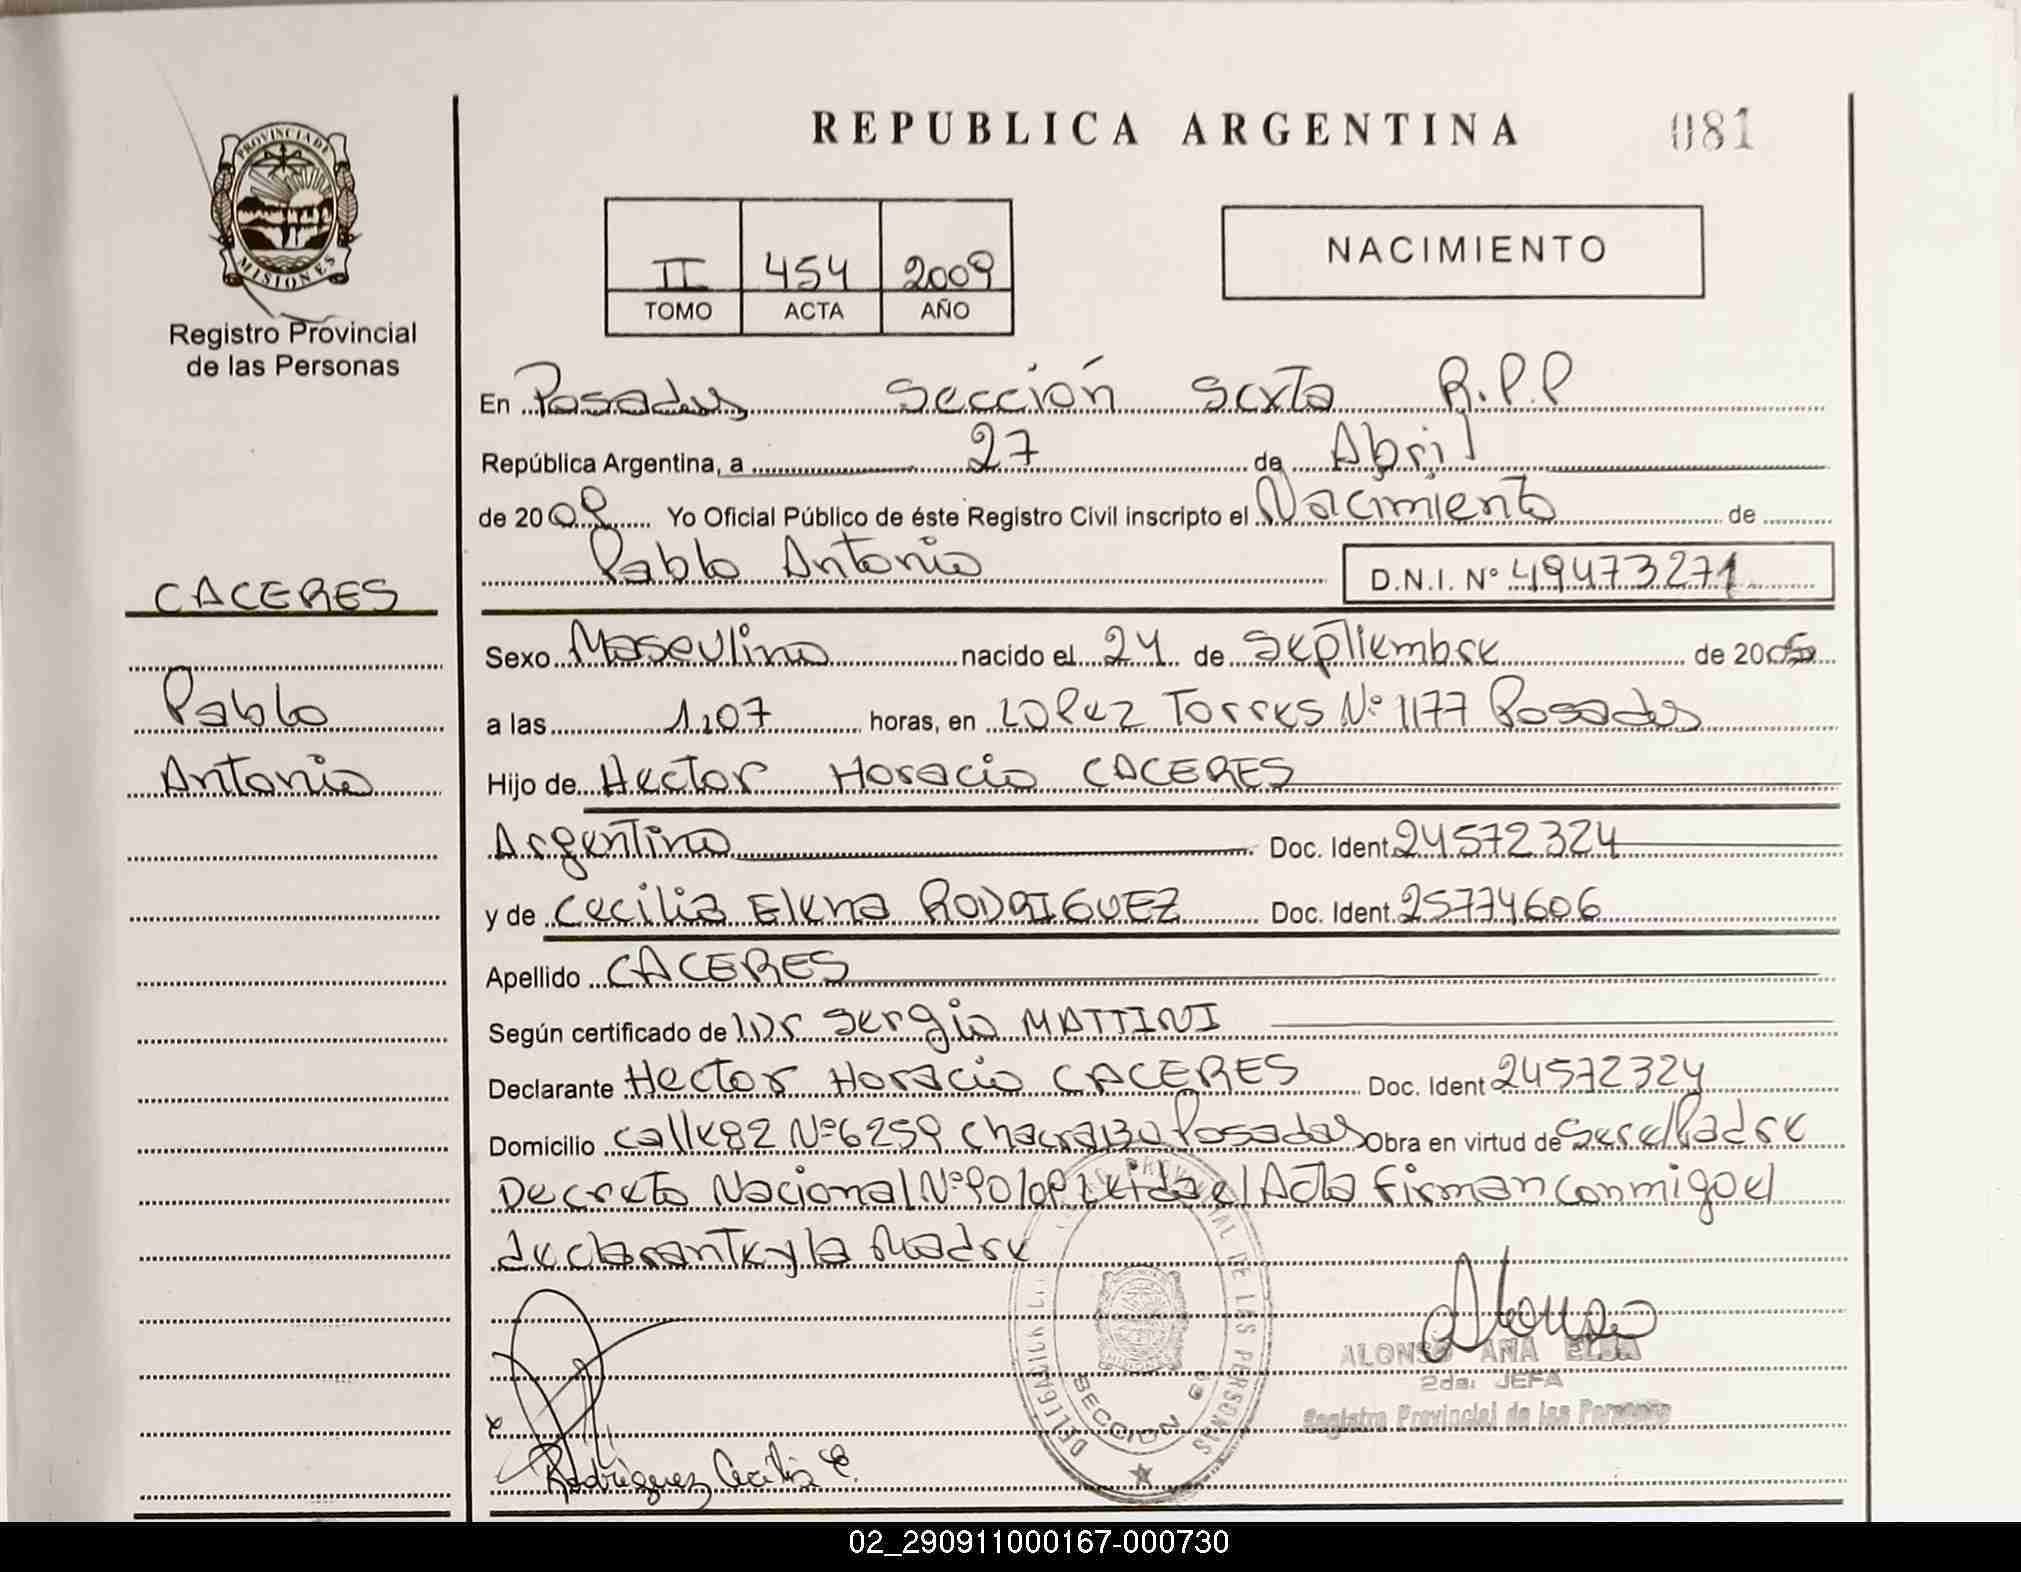 REPUBLICA ARGENTINA
081
PROVINCIA DE
MISIONES
Registro Provincial
de las Personas
II 454 2009
TOMO ACTA AÑO
NACIMIENTO
En Posadas Sección Sexta R.P.P
República Argentina, a 27 de Abril
de 2009 Yo Oficial Público de éste Registro Civil inscripto el Nacimiento de
Pablo Antonio D.N.I. N° 49473271
CACERES
Pablo
Antonio
Sexo Masculino nacido el 24 de Septiembre de 200
a las 1,07 horas, en LOPez Torres N° 1177 Posadas
Hijo de Hector Horacio CACERES
Argentino Doc. Ident. 24572324
y de Cecilia Elena RODRIGUEZ Doc. Ident. 25774606
Apellido CACERES
Según certificado de Dr Sergio MATTINI
Declarante Hector Horacio CACERES Doc. Ident 24572324
Domicilio calle 82 N° 6259 Chacra 130 Posadas Obra en virtud de Ser el Padre
Decreto Nacional N° 90/09 Leida el Acta Firman conmigo el
declarante y la Madre
DELEGACION PROVINCIAL DE LAS PERSONAS
SECCION 6°
Alonso
ALONSO ANA ELBA
2da. JEFA
Registro Provincial de las Personas
Rodriguez Cecilia E.
02_290911000167-000730